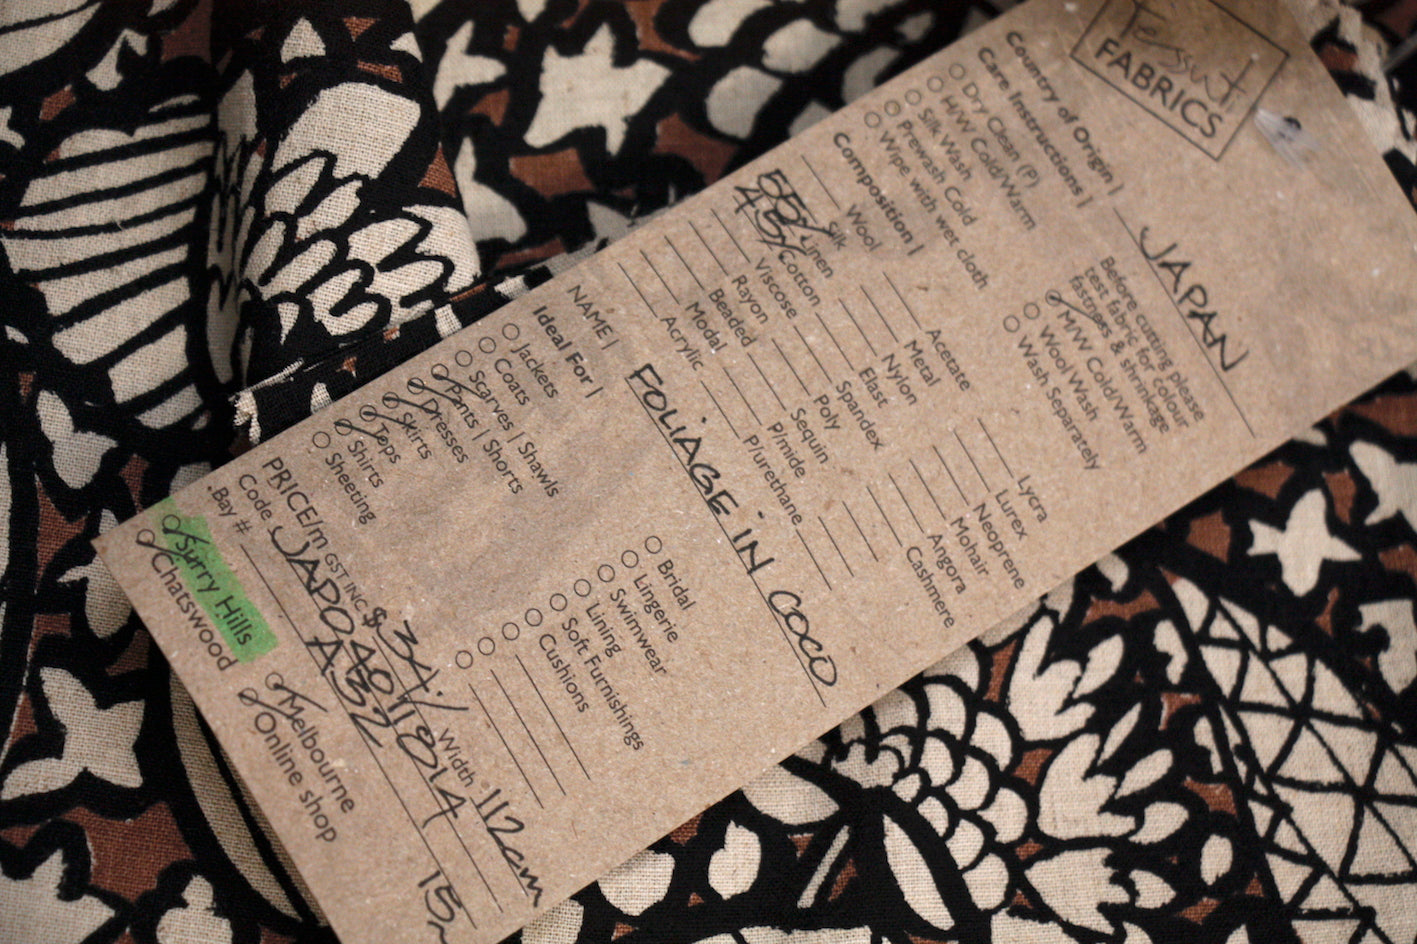 Tessuti
FABRICS
Country of Origin | JAPAN
Care Instructions |
Dry Clean (P)
H/W Cold/Warm
Silk Wash
Prewash Cold
Wipe with wet cloth
Before cutting please
test fabric for colour
fastness & shrinkage
M/W Cold/Warm
Wool Wash
Wash Separately
Composition |
Wool
Silk
55% Linen
45% Cotton
Viscose
Rayon
Beaded
Modal
Acrylic
Acetate
Metal
Nylon
Elast
Spandex
Poly
Sequin
P/mide
P/urethane
Lycra
Lurex
Neoprene
Mohair
Angora
Cashmere
NAME | FOLIAGE IN COCO
Ideal For |
Jackets
Coats
Scarves | Shawls
Pants | Shorts
Dresses
Skirts
Tops
Shirts
Sheeting
Bridal
Lingerie
Swimwear
Lining
Soft Furnishings
Cushions
PRICE/m GST INC $ Width 112cm
Code JAP0401181014
Bay # A32
Surry Hills
Chatswood
Melbourne
Online shop